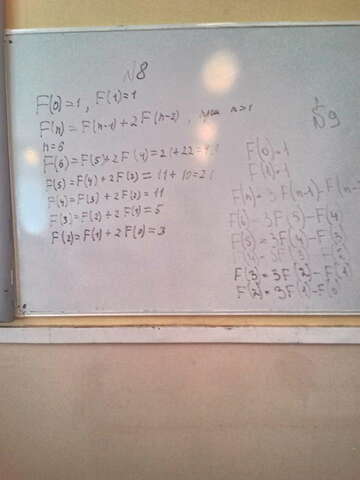 N8
F(0)=1, F(1)=1
F(n)=F(n-1)+2F(n-2), при n>1
n=6
F(6)=F(5)+2F(4)=21+22=
F(5)=F(4)+2F(3)=11+10=21
F(4)=F(3)+2F(2)=11
F(3)=F(2)+2F(1)=5
F(2)=F(1)+2F(0)=3
N9
F(0)=1
F(1)=1
F(n)=3F(n-1)-F(n-
3F(5)-F(4)
F(5)=3F(4)-F(3)
F(3)=3F(2)-F(1)
F(2)=3F(1)-F(0)